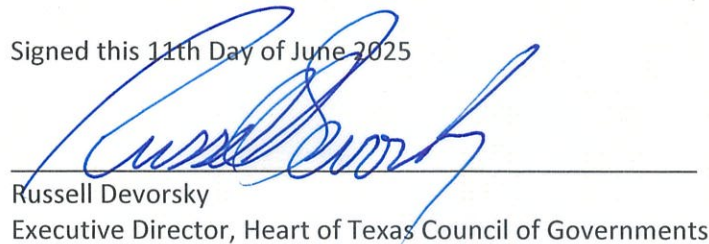 Signed this 11th Day of June 2025
Russell Devorsky
Russell Devorsky
Executive Director, Heart of Texas Council of Governments